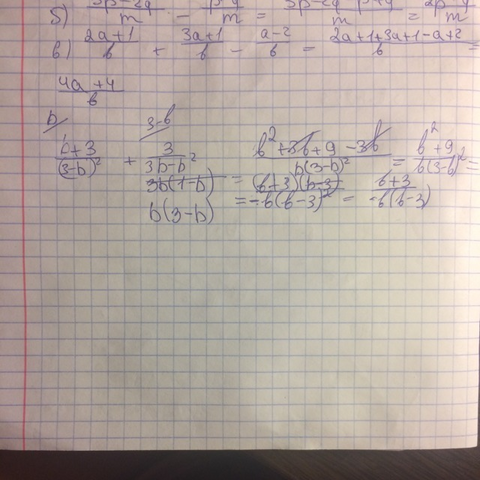 б) (3p-2q)/m - (p-q)/m = (3p-2q p+q)/m = (2p-q)/m
в) (2a+1)/b + (3a+1)/b - (a-2)/b = (2a+1+3a+1-a+2)/b =
(4a+4)/b
b/ 3-b/
(b+3)/(3-b)² + 3/(3b-b²) (b²+3b+9-3b)/(b(3-b)²) = (b²+9)/(b(3-b)²) =
3b(1-b) = (b+3)(b-3) b+3
b(3-b) = -b(b-3)² = -b(b-3)